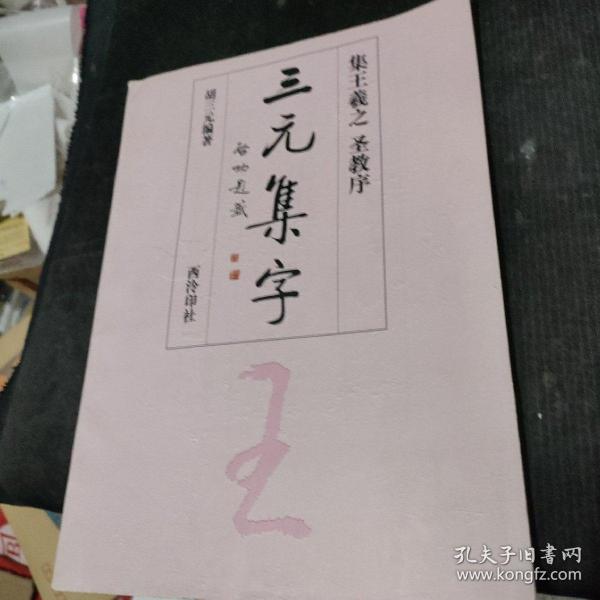 集王羲之 圣教序
三元集字
启功题签
胡三元编著
西泠印社
王
孔夫子旧书网
www.kongfz.com